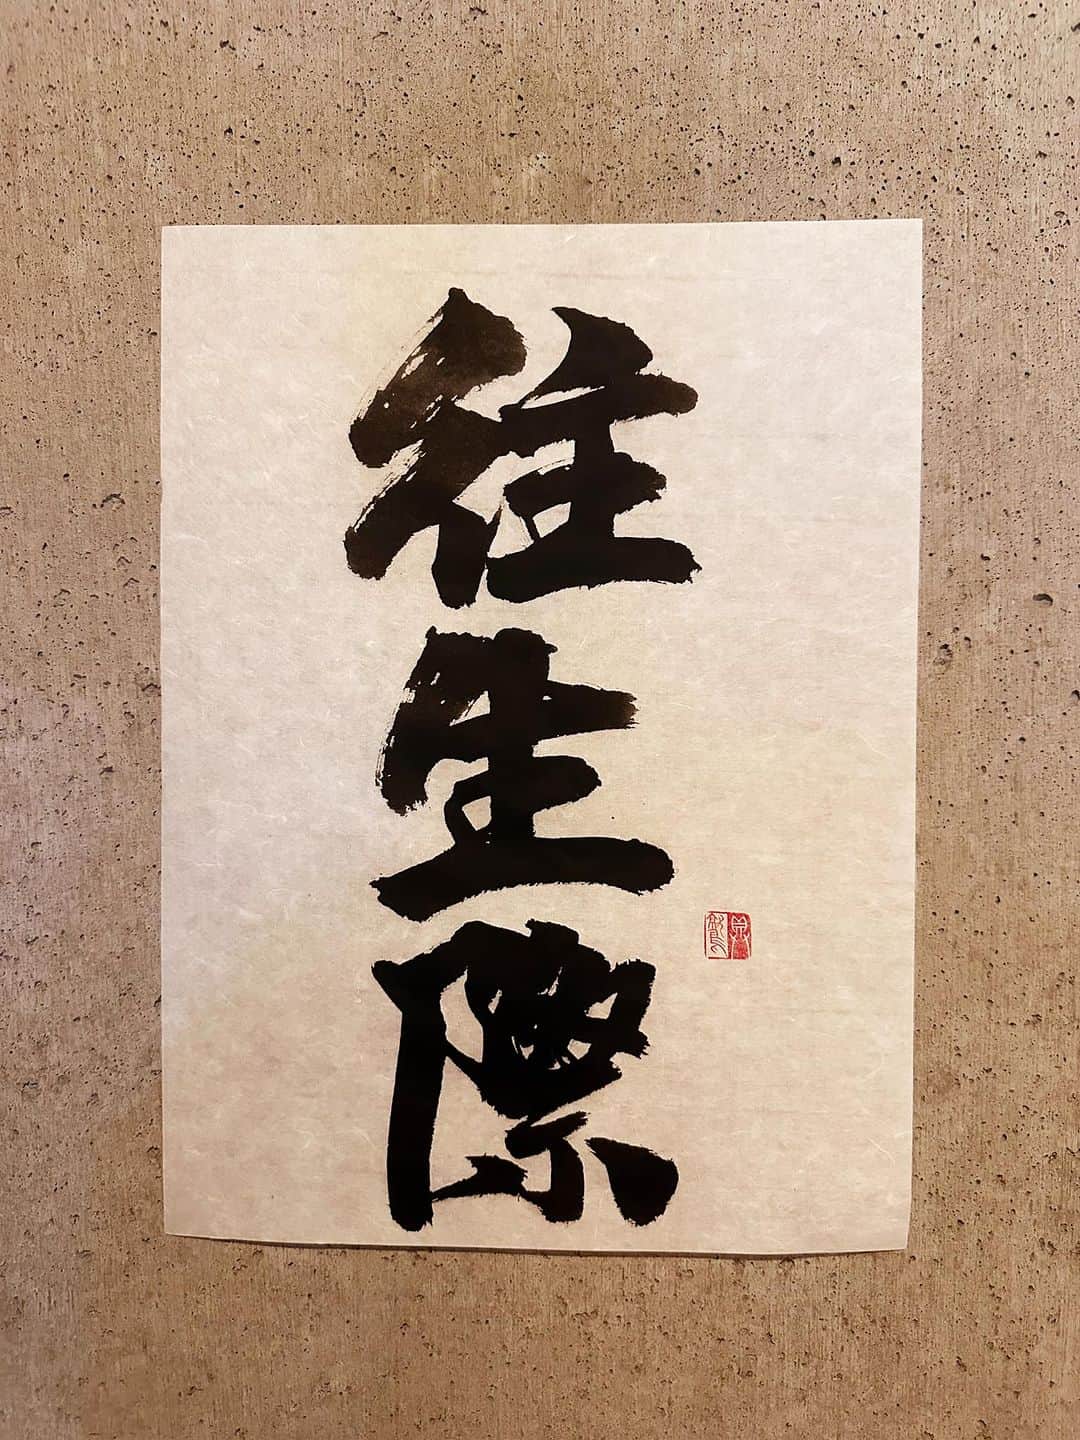 往生際